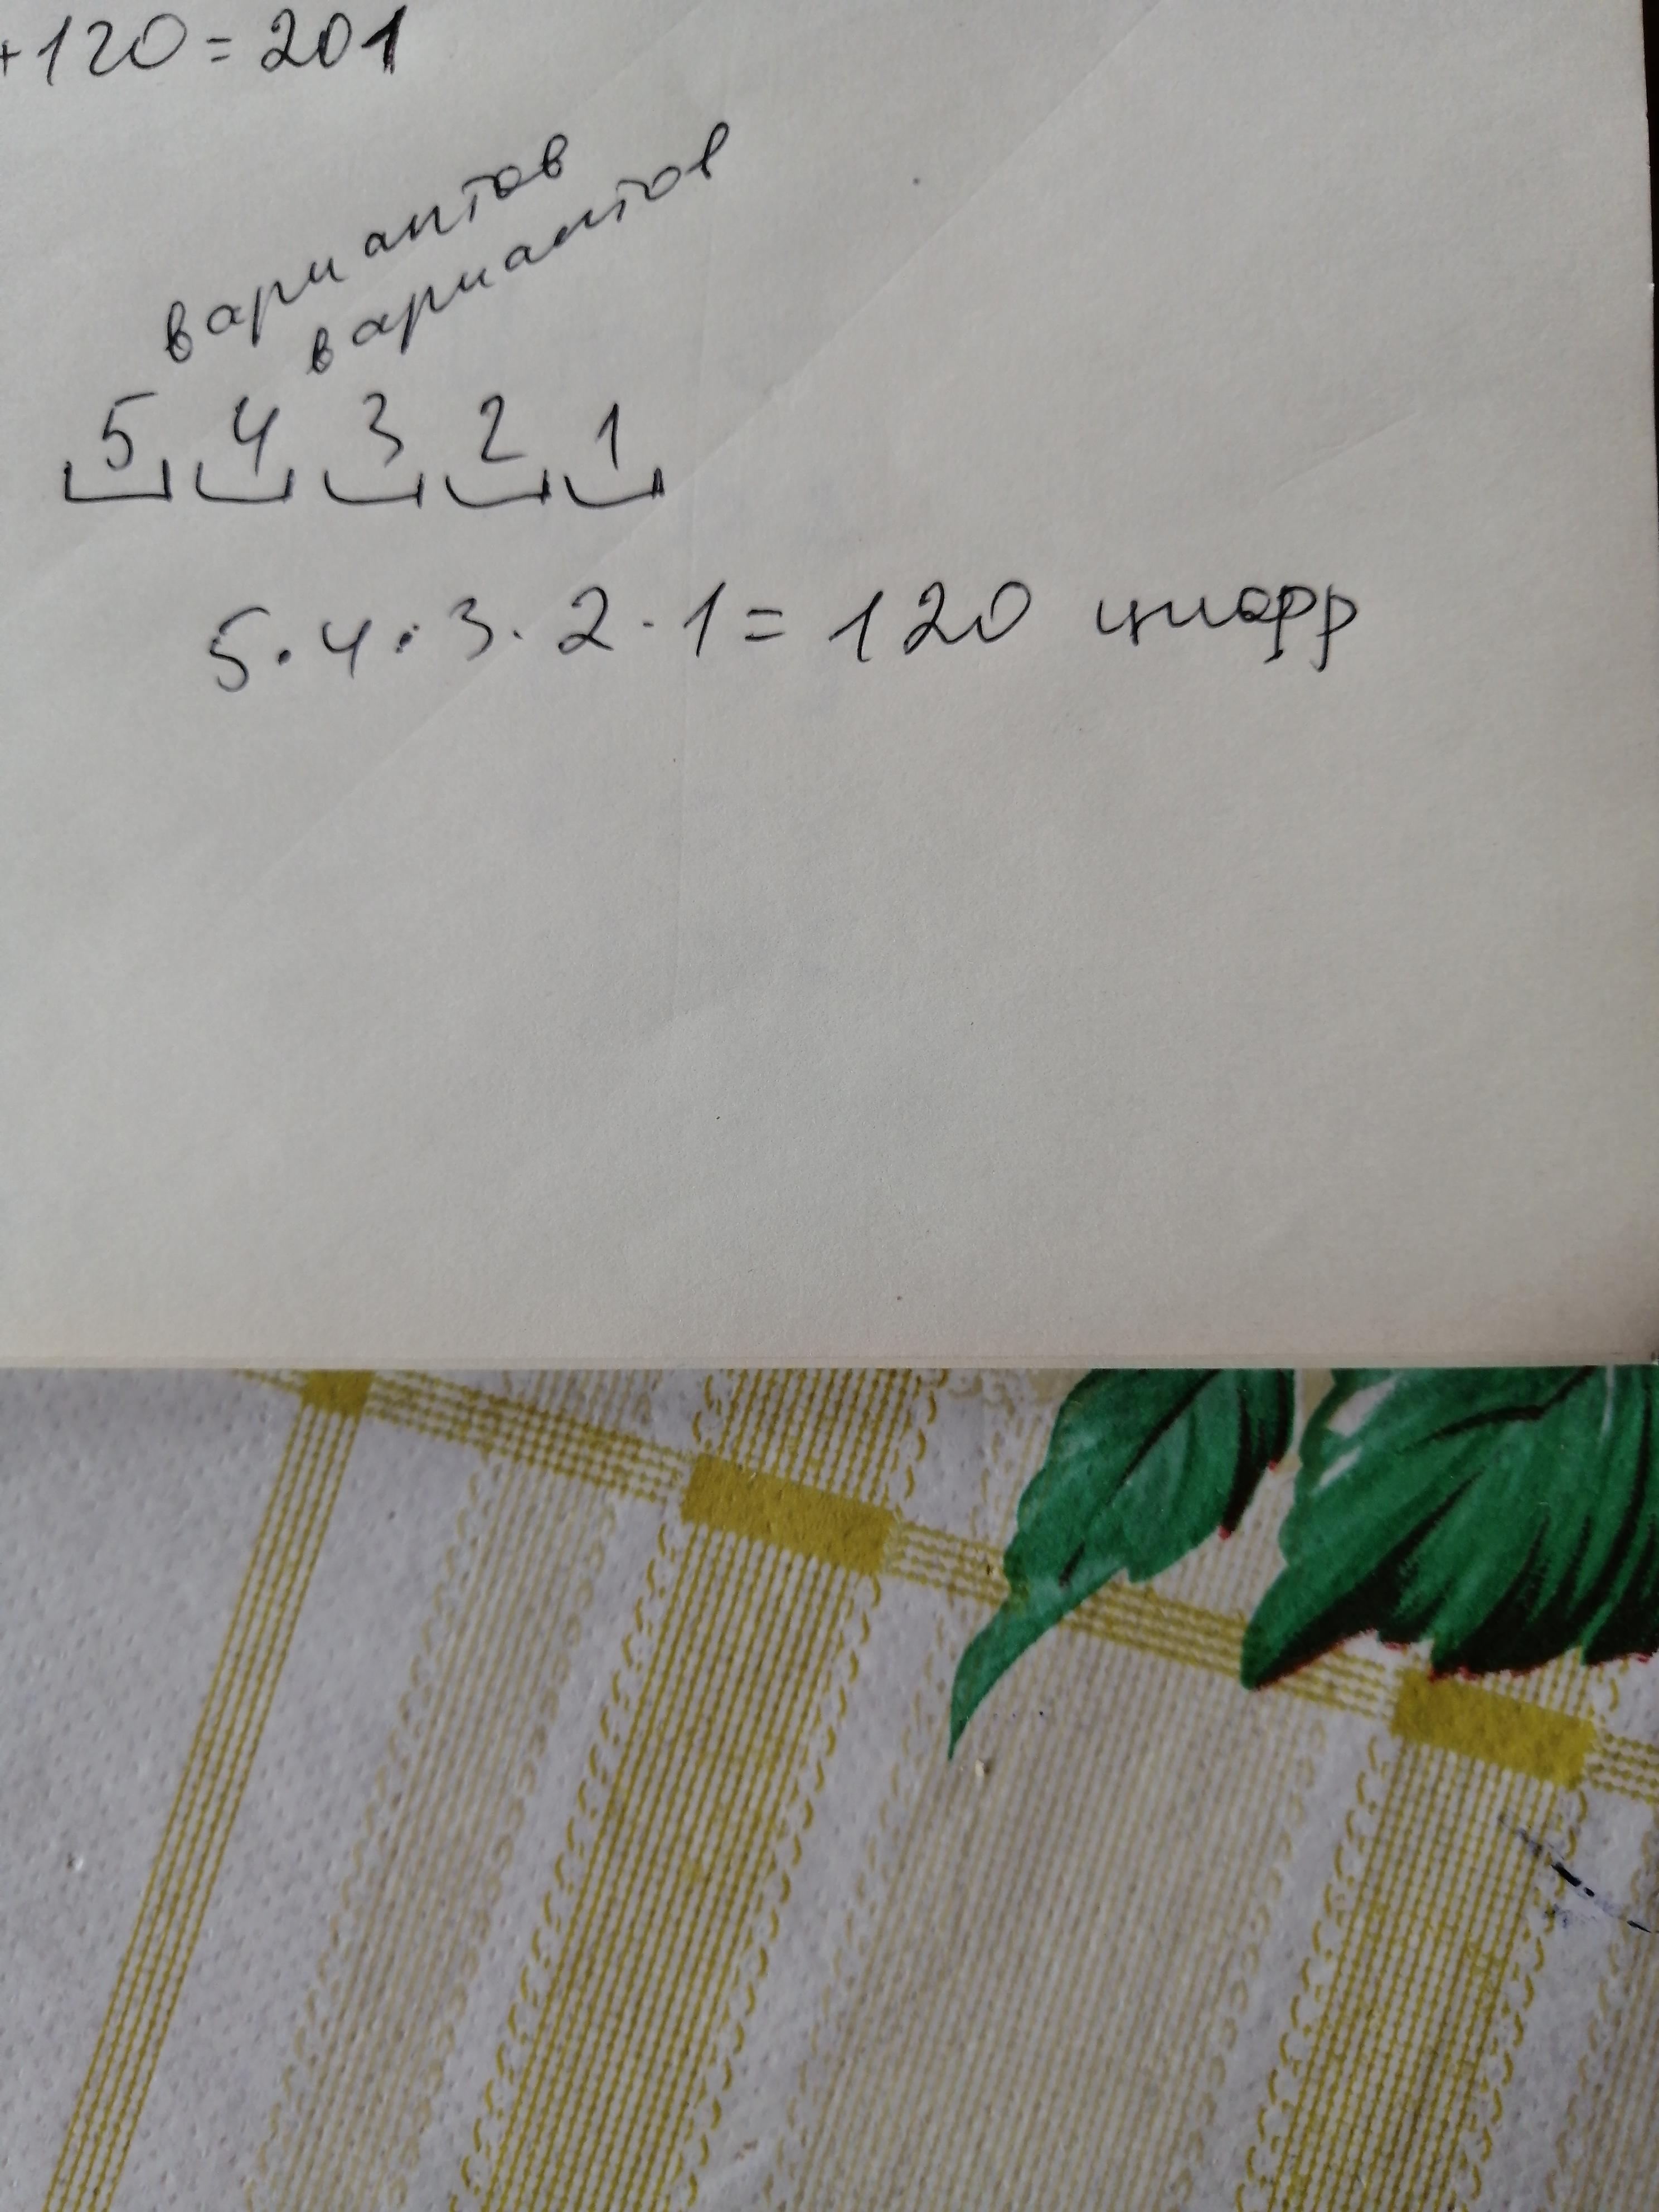 +120=201
вариантов
вариантов
5 4 3 2 1
5·4·3·2·1=120 цифр